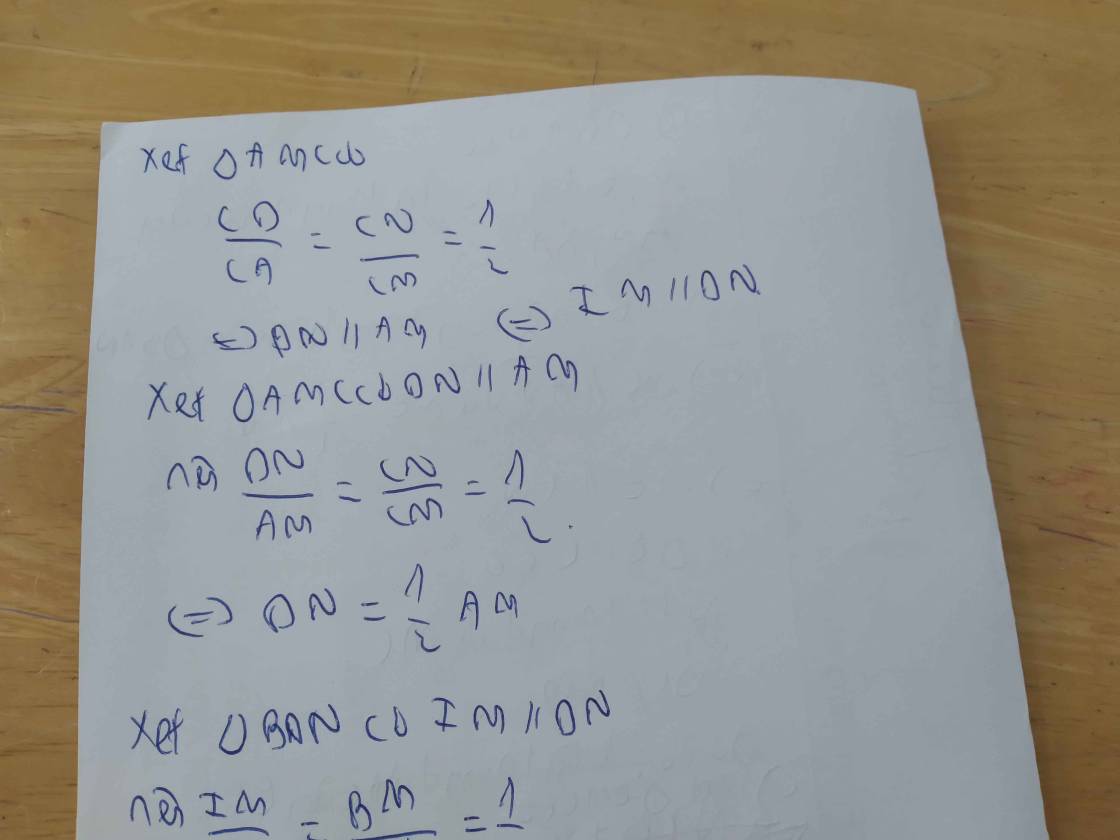 Xet ΔAMC có
CD/CA = CN/CM = 1/2
<=> DN // AM <=> IM // DN
Xet ΔAMC có DN // AM
nên DN/AM = CN/CM = 1/2
<=> DN = 1/2 AM
Xet ΔBDN có IM // DN
nên IM = BM = 1